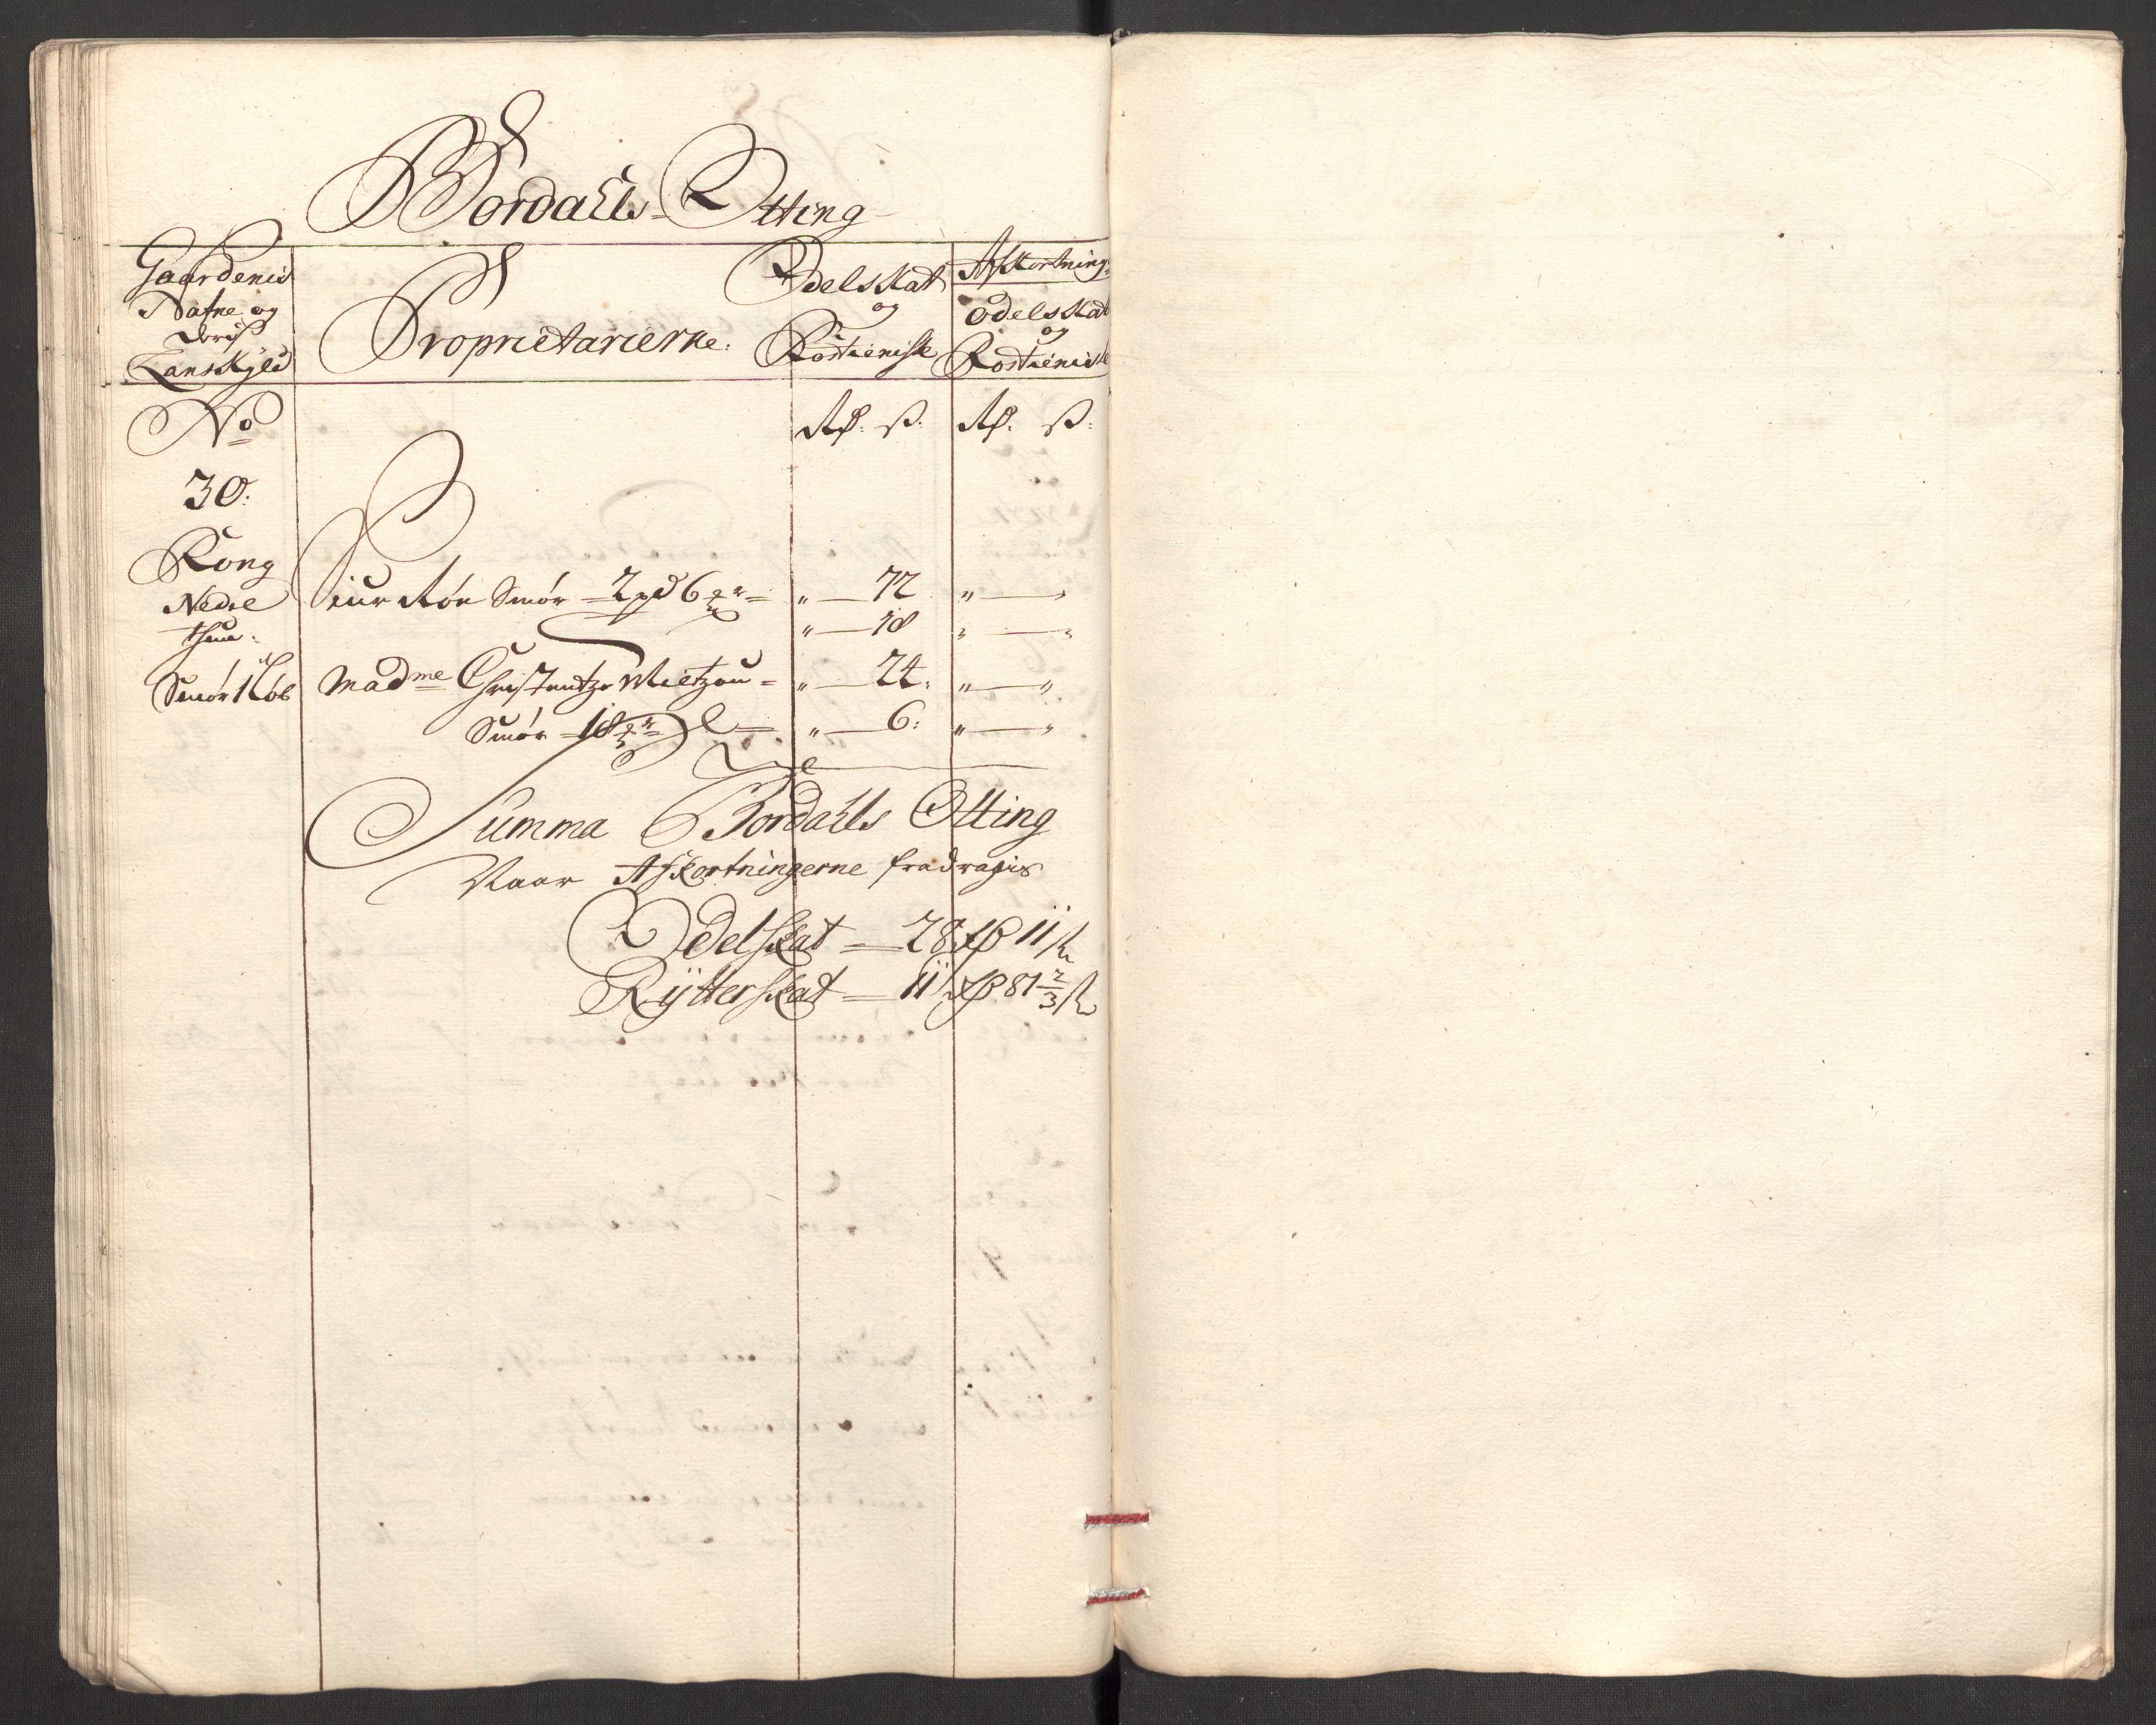 Bordalls Otting
Gaardenis Nafne og deris Lanskyld
Proprietarierne.
Odelskat og Rostieniste
Afkortning, odelskat og Rostieniste
No
Rd. ß. Rd. ß.
30.
Rong
Nedre
thun.
Smór 1 Lób
Siur Rón Smór = 2 pd 6 = " — 72 " — "
" — 18 " — "
Mad me Christentze Mietzou = " — 24. " — "
Smór = 18 " — 6: " — "
Summa Bordalls Otting
Naar Afkortningerne fradragis
Odelskat — 28 Rd 11 ß
Rÿtterskat — 11 Rd 81 2/3 ß